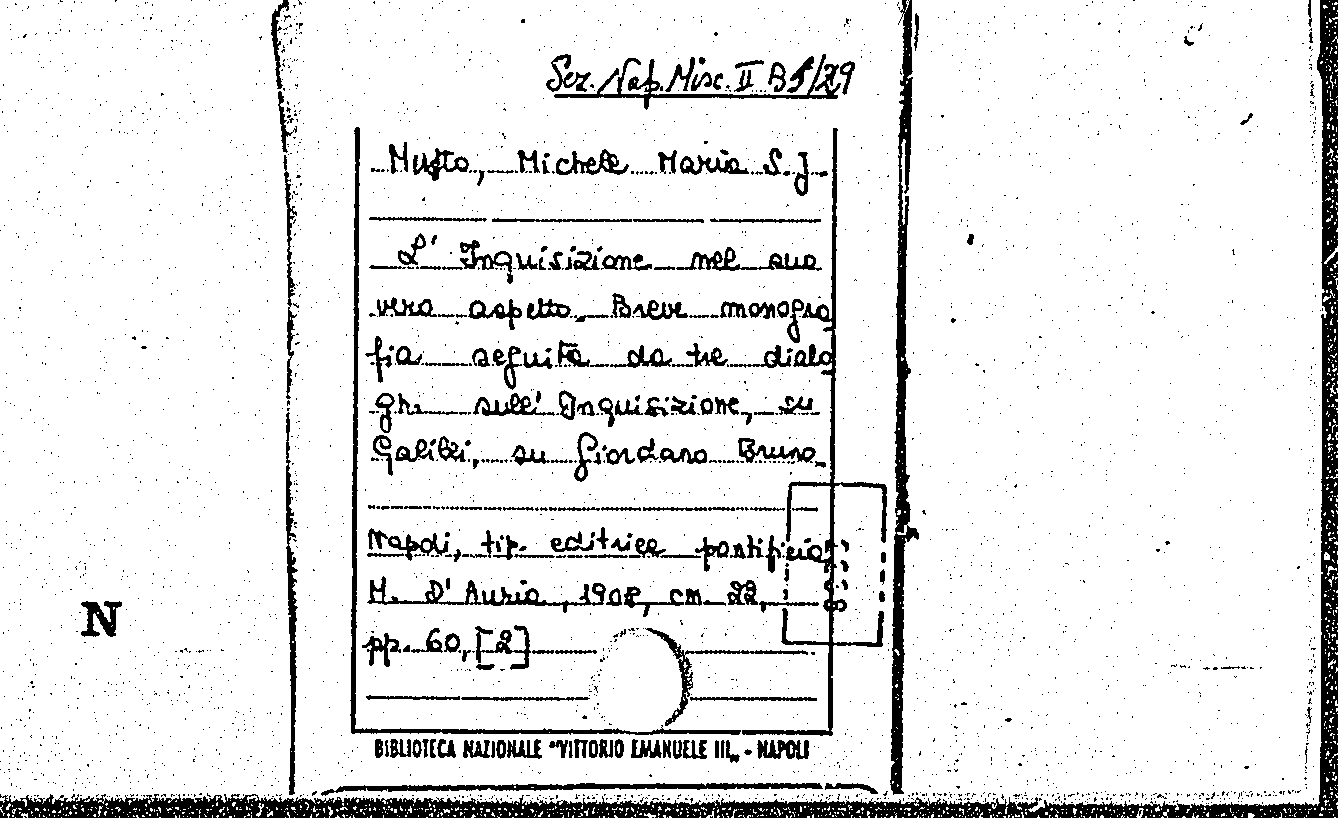 Sez. Nap. Misc. II B 5/29
Musto, Michele Maria S.J.
L' Inquisizione nel suo
vero aspetto. Breve monogra
fia seguita da tre dialo
ghi sull' Inquisizione, su
Galilei, su Giordano Bruno.
Napoli, tip. editrice pontificia
M. D' Auria, 1908, cm. 22,
pp. 60, [2]
N
BIBLIOTECA NAZIONALE "VITTORIO EMANUELE III„ - NAPOLI